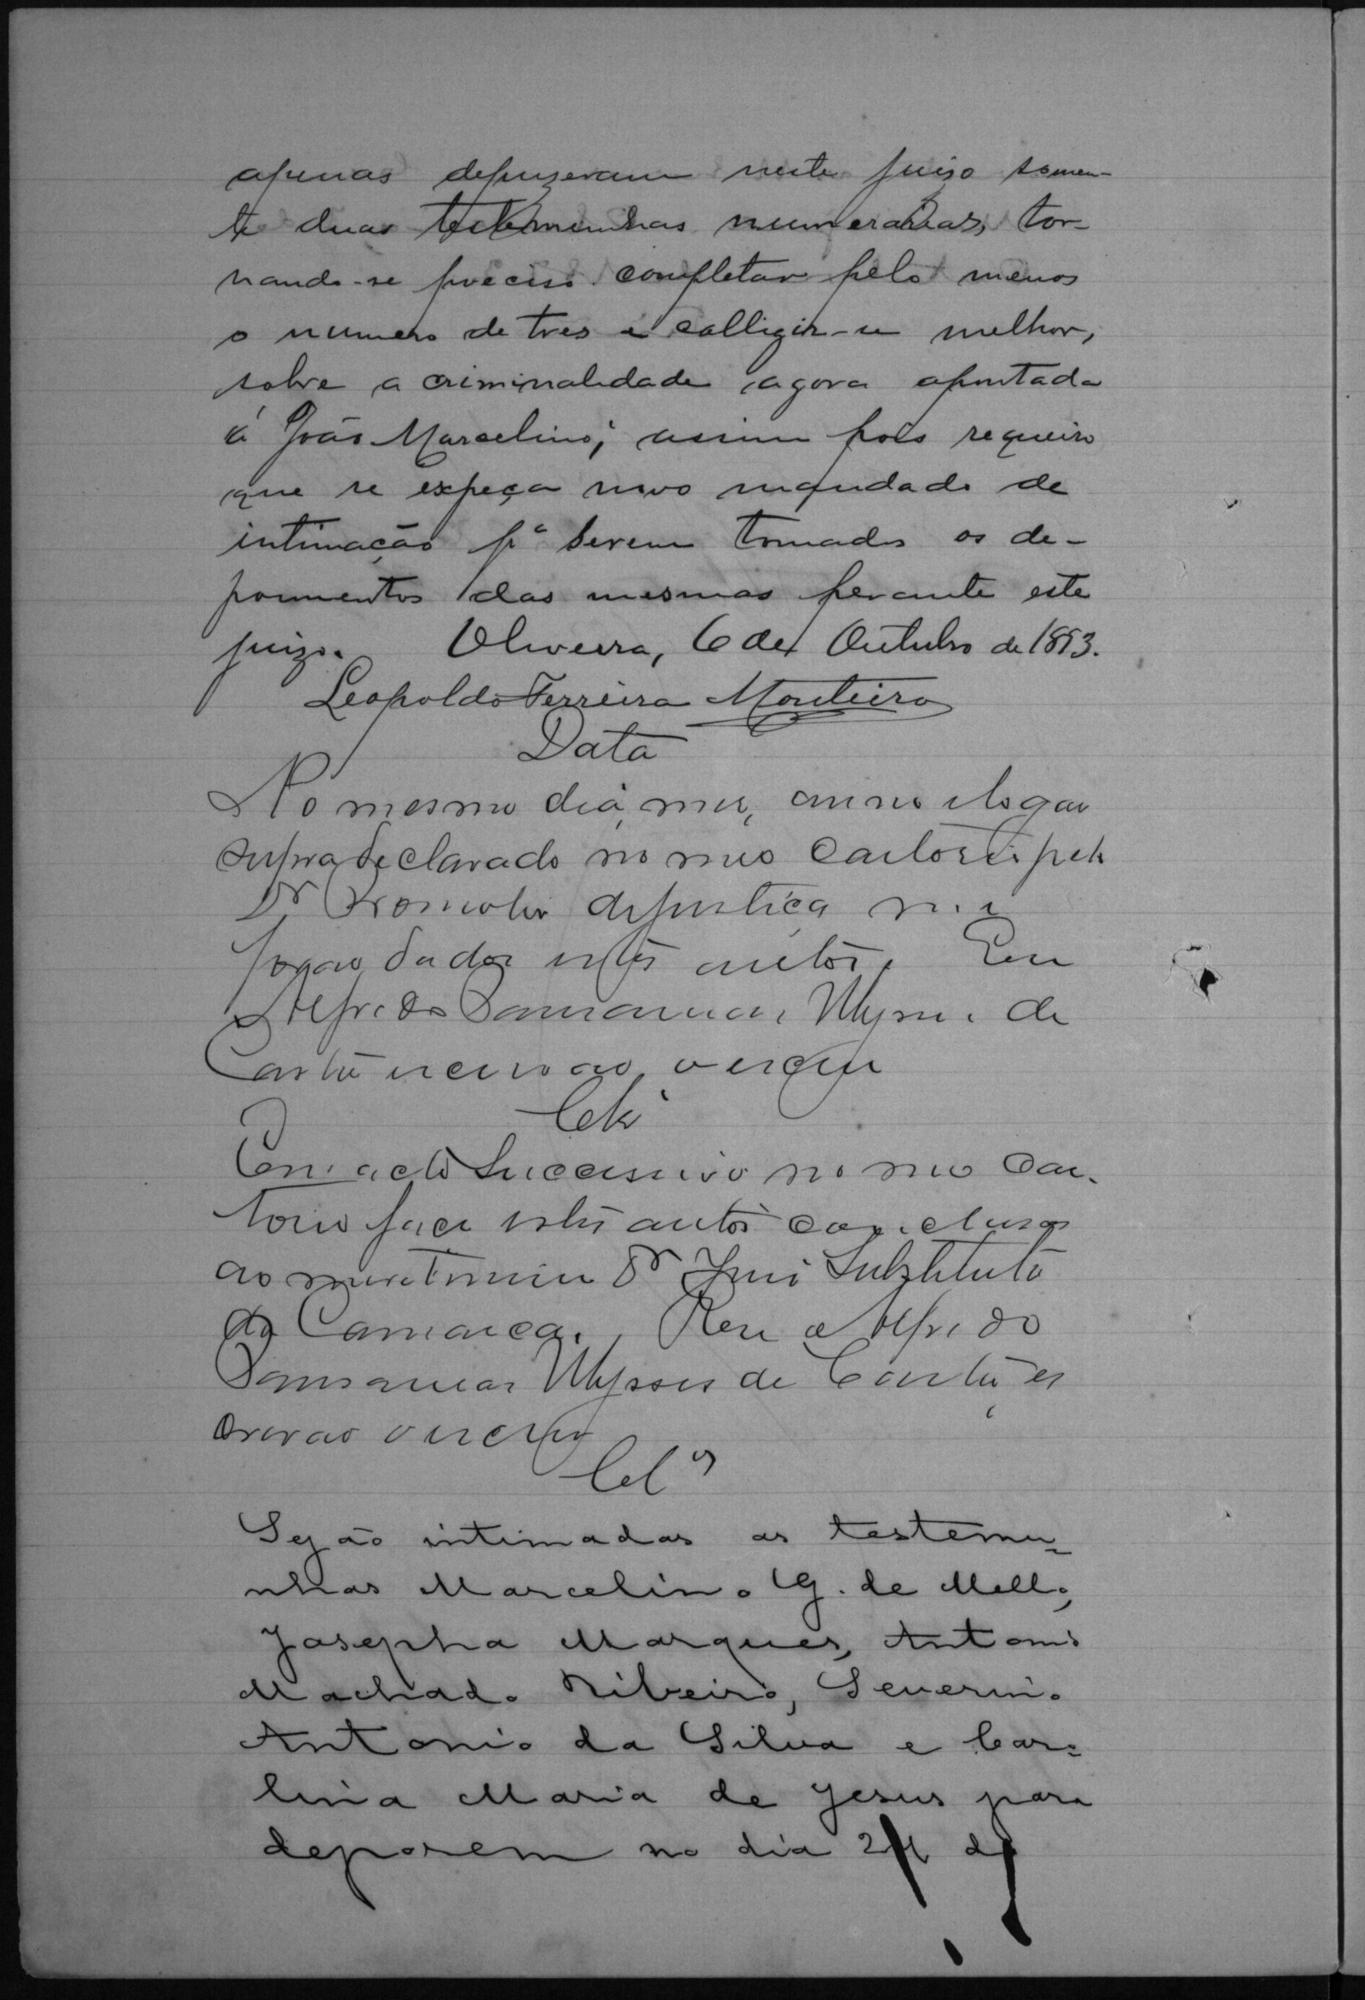 apenas depuzeram neste juizo somen-
te duas testemunhas numerarias, tor-
nando-se preciso completar pelo menos
o numero de tres e colligir-se melhor,
sobre a criminalidade agora apontada
á João Marcelino; assim pois requeiro
que se expeça novo mandado de
intimação pª serem tomados os de-
poimentos das mesmas perante este
juizo. Oliveira, 6 de Outubro de 1893.
Leopoldo Ferreira Monteiro
Data
No mesmo dia, mez, anno e logar
supra declarado no meo cartorio pelo
Dr Promotor de justiça me
forão dados estes autos. Eu
Alfredo Ulysses de
Castro escrivão o escrevi
Clsº
Em acto successivo no meo car-
torio faço estes autos conclusos
ao meretissimo Dr Juis Substituto
da Comarca. Eu Alfredo
Ulysses de Castro es
crivão o escrevi
Clºs
Sejão intimadas as testemu-
nhas Marcelino G. de Mello,
Josepha Marques, Antonio
Machado Ribeiro, Severino
Antonio da Silva e Car-
lina Maria de Jesus para
deporem no dia 24 de